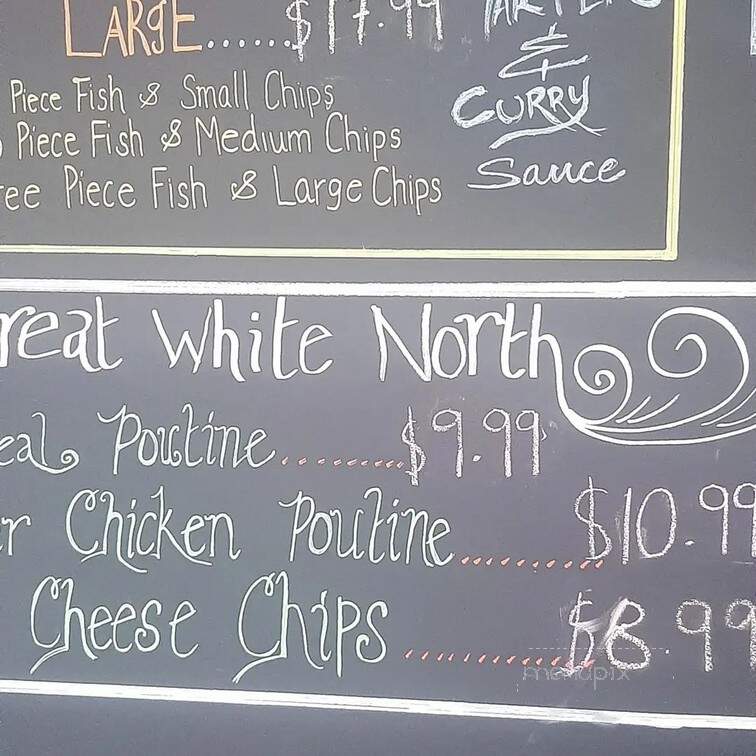 LARGE......$17.99
Piece Fish & Small Chips
Piece Fish & Medium Chips
ree Piece Fish & Large Chips
&
CURRY
Sauce
reat White North
eal Poutine..........$9.99
r Chicken Poutine..........$10.99
Cheese Chips ..........$8.99
menupix